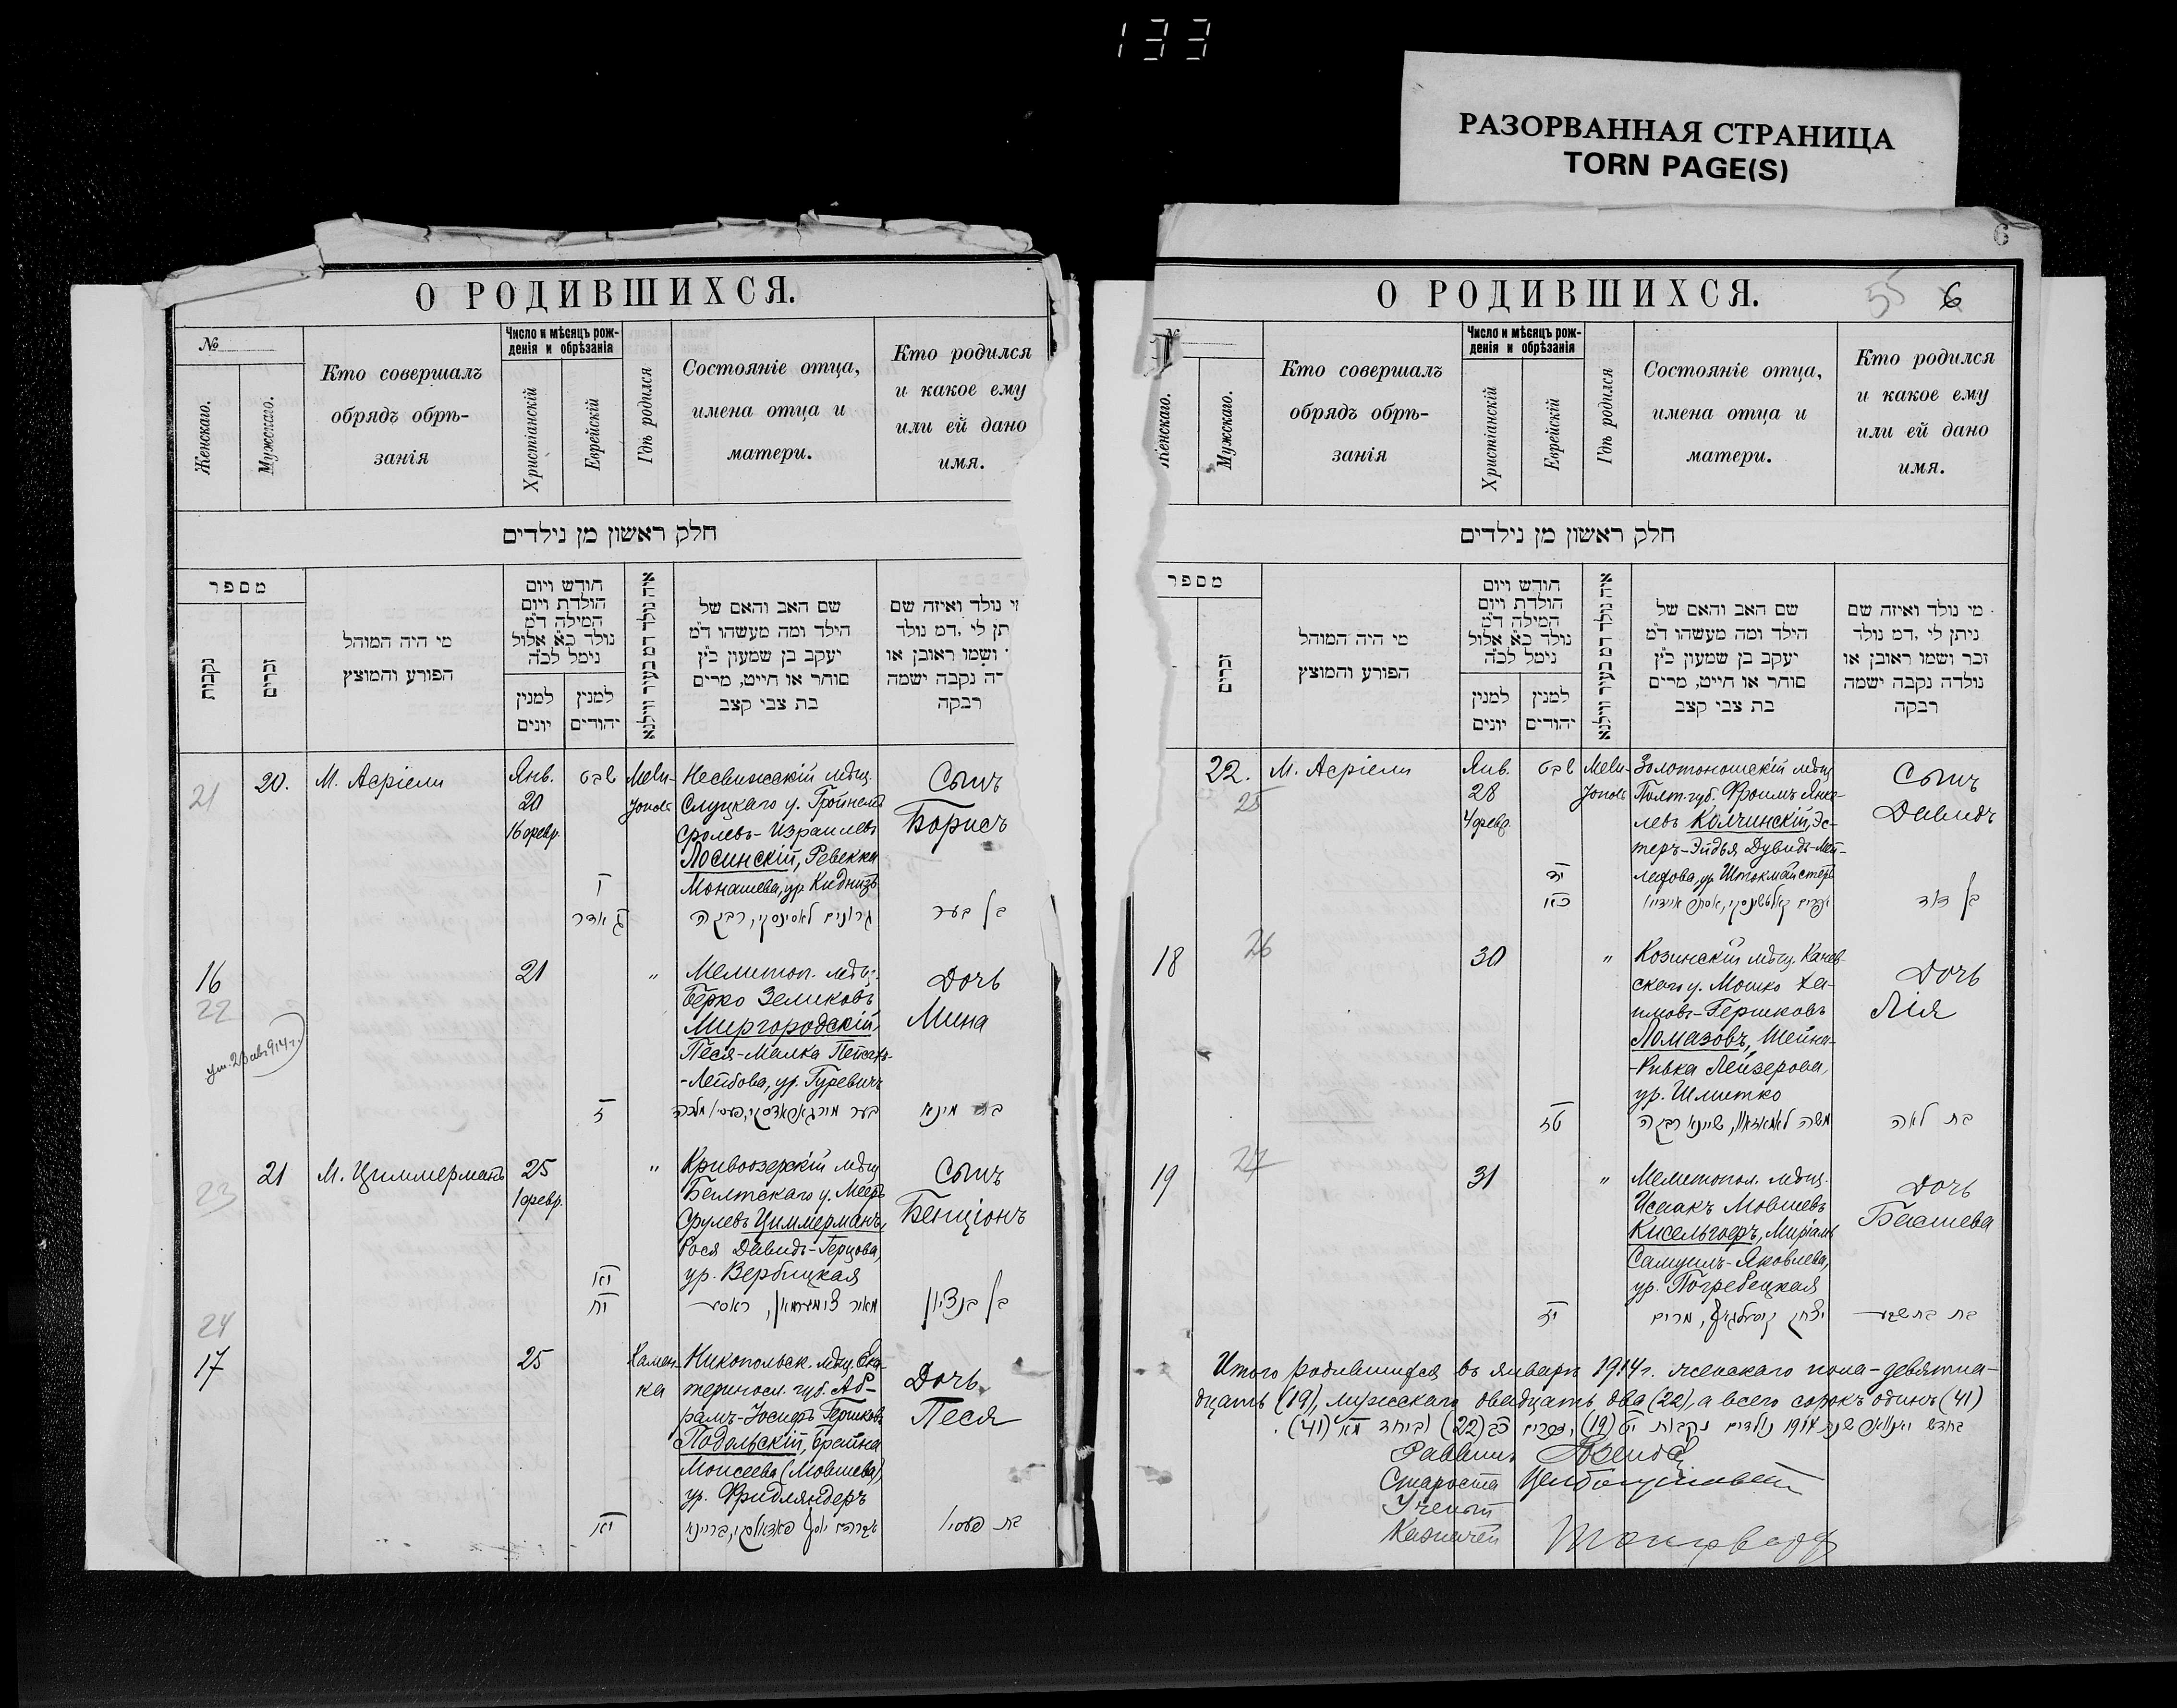 133
РАЗОРВАННАЯ СТРАНИЦА
TORN PAGE(S)
О РОДИВШИХСЯ.
№
Женскаго.
Мужскаго.
Кто совершалъ
обрядъ обрѣ-
занія
Число и мѣсяцъ рож-
денія и обрѣзанія
Христіанскій
Еврейскій
Гдѣ родился
Состояніе отца,
имена отца и
матери.
Кто родился
и какое ему
или ей дано
имя.
חלק ראשון מן נילדים
מספר
נקבות
זכרים
מי היה המוהל
הפורע והמוצץ
חודש ויום
הולדת ויום
המילה ד״מ
נולד כ״א אלול
נימל לכ״ה
למנין
יונים
למנין
יהודים
איה נולד דמ בעיר ווילנא
שם האב והאם של
הילד ומה מעשהו ד״מ
יעקב בן שמעון כ״ץ
סוחר או חייט, מרים
בת צבי קצב
נולד ואיזה שם
תן לי, דמ נולד
ושמו ראובן או
דה נקבה ישמה
רבקה
21
20.
М. Асріели
Янв.
20
16 февр.
שבט
ג אדר
Мели-
Несвижскій мѣщ.
Слуцкаго у.
Сролевъ-Израилевъ
Лосинскій, Ревекка
Монашева, ур.
Сынъ
Борисъ
בן בער
16
22
21
"
Мелитоп. мѣщ.
Берко Зеликовъ
Миргородскій,
Песя-Малка Пейсахъ-
-Лейбова, ур. Гуревичъ
Дочь
Мина
בת מינא
23
21
М. Циммерманъ
25
1 февр.
"
Кривоозерскій мѣщ.
Балтскаго у. Мееръ
Срулевъ Циммерманъ,
Рося Давидъ-Герцова,
ур. Вербицкая
מאיר צימערמאן, ראסע
Сынъ
Бенціонъ
בן בנציון
24
17
25
Камен-
ка
Никопольск. мѣщ. Ека-
теринос. губ. Аб-
рамъ-Іосифъ Гершковъ
Подольскій, Брайна
Моисеева (Мовшева)
ур. Фридляндеръ
אברהם יוסף פאדאלסקי, בריינא
Дочь
Песя
בת פעסיא
О РОДИВШИХСЯ.
55 6
6
Женскаго.
Мужскаго.
Кто совершалъ
обрядъ обрѣ-
занія
Число и мѣсяцъ рож-
денія и обрѣзанія
Христіанскій
Еврейскій
Гдѣ родился
Состояніе отца,
имена отца и
матери.
Кто родился
и какое ему
или ей дано
имя.
חלק ראשון מן נילדים
מספר
זכרים
מי היה המוהל
הפורע והמוצץ
חודש ויום
הולדת ויום
המילה ד״מ
נולד כ״א אלול
נימל לכ״ה
למנין
יונים
למנין
יהודים
איה נולד דמ בעיר ווילנא
שם האב והאם של
הילד ומה מעשהו ד״מ
יעקב בן שמעון כ״ץ
סוחר או חייט, מרים
בת צבי קצב
מי נולד ואיזה שם
ניתן לי, דמ נולד
זכר ושמו ראובן או
נולדה נקבה ישמה
רבקה
22.
25
М. Асріели
Янв.
28
4 февр.
שבט
Мели-
Золотоношскій мѣщ.
Полт. губ. Фроимъ Янке-
левъ Колчинскій, Эс-
теръ-Эйдья Дувидъ-Мей-
лехова, ур. Штокмайстеръ
Сынъ
Давидъ
בן דוד
18
26
30
"
Козинскій мѣщ. Канев-
скаго у. Мошко Ха-
имовъ-Гершковъ
Ломазовъ, Шейна-
-Ривка Лейзерова,
ур. Шлитко
Дочь
Лія
בת לאה
19
27
31
"
Мелитопол. мѣщ.
Исаакъ Мовшевъ
Кисельгофъ, Миріамъ
Самуилъ-Яковлева,
ур. Погребецкая
Дочь
Басшева
בת בת שבע
Итого родившихся въ январѣ 1914 г. женскаго пола-девятна-
дцать (19), мужскаго двадцать два (22), а всего сорокъ одинъ (41)
בחדש יאנואר שנת 1914 נולדים נקבות יט (19), זכרים כב (22) וביחד מא (41).
Раввинъ
Староста
Ученый
Казначей